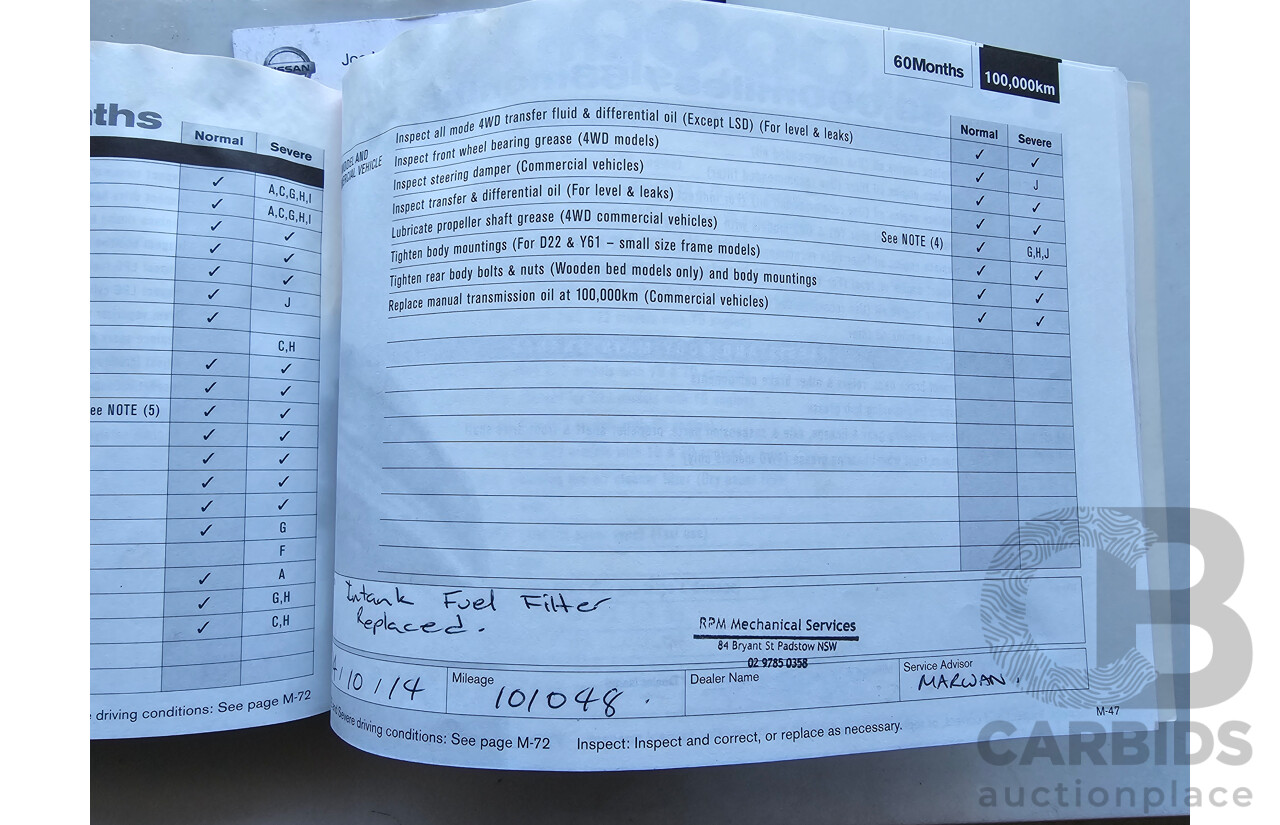 NISSAN
ths
Normal Severe
✓ A,C,G,H,I
✓ A,C,G,H,I
✓ ✓
✓ ✓
✓ ✓
✓ J
✓
C,H
✓ ✓
✓ ✓
ee NOTE (5) ✓ ✓
✓ ✓
✓ ✓
✓ ✓
✓ ✓
✓ G
F
✓ A
✓ G,H
✓ C,H
driving conditions: See page M-72
60Months 100,000km
Normal Severe
VEHICLE
Inspect all mode 4WD transfer fluid & differential oil (Except LSD) (For level & leaks) ✓ ✓
Inspect front wheel bearing grease (4WD models) ✓ J
Inspect steering damper (Commercial vehicles) ✓ ✓
Inspect transfer & differential oil (For level & leaks) ✓ ✓
Lubricate propeller shaft grease (4WD commercial vehicles) See NOTE (4) ✓ G,H,J
Tighten body mountings (For D22 & Y61 – small size frame models) ✓ ✓
Tighten rear body bolts & nuts (Wooden bed models only) and body mountings ✓ ✓
Replace manual transmission oil at 100,000km (Commercial vehicles) ✓ ✓
Intank Fuel Filter
Replaced.
RPM Mechanical Services
84 Bryant St Padstow NSW
02 9785 0358
/10/14
Mileage
101048.
Dealer Name
Service Advisor
MARWAN.
M-47
Severe driving conditions: See page M-72 Inspect: Inspect and correct, or replace as necessary.
CB
CARBIDS
auctionplace